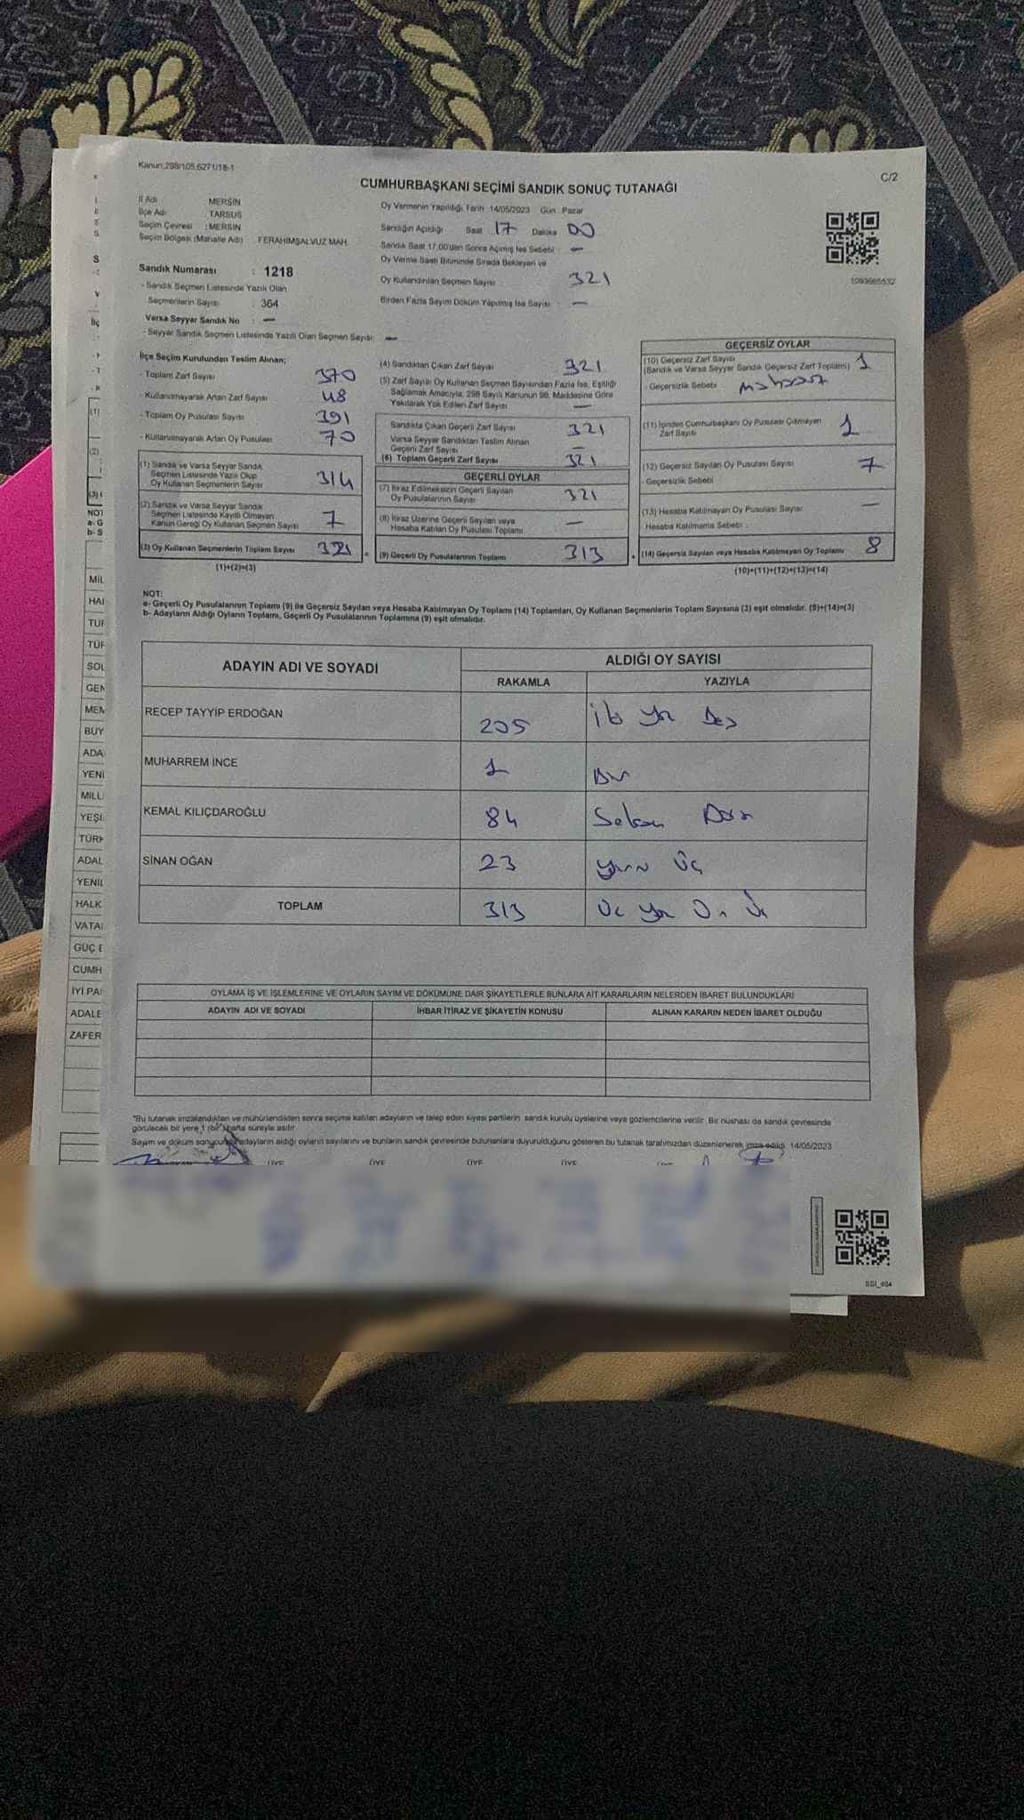 Kanun:298/105,6271/18-1
C/2
CUMHURBAŞKANI SEÇİMİ SANDIK SONUÇ TUTANAĞI
İl Adı MERSİN
İlçe Adı TARSUS
Seçim Çevresi : MERSİN
Seçim Bölgesi (Mahalle Adı) : FERAHİMŞALVUZ MAH.
Sandık Numarası : 1218
- Sandık Seçmen Listesinde Yazılı Olan
Seçmenlerin Sayısı : 364
Varsa Seyyar Sandık No : —
- Seyyar Sandık Seçmen Listesinde Yazılı Olan Seçmen Sayısı: —
Oy Vermenin Yapıldığı Tarih :14/05/2023 Gün : Pazar
Sandığın Açıldığı Saat 17 Dakika 00
Sandık Saat 17.00'den Sonra Açılmış İse Sebebi : —
Oy Verme Saati Bitiminde Sırada Bekleyen ve
Oy Kullandırılan Seçmen Sayısı 321
Birden Fazla Sayım Döküm Yapılmış İse Sayısı : —
İlçe Seçim Kurulundan Teslim Alınan;
- Toplam Zarf Sayısı 370
- Kullanılmayarak Artan Zarf Sayısı 48
- Toplam Oy Pusulası Sayısı 391
- Kullanılmayarak Artan Oy Pusulası 70
(1) Sandık ve Varsa Seyyar Sandık
Seçmen Listesinde Yazılı Olup
Oy Kullanan Seçmenlerin Sayısı 314
(2) Sandık ve Varsa Seyyar Sandık
Seçmen Listesinde Kayıtlı Olmayan
Kanun Gereği Oy Kullanan Seçmen Sayısı 7
(3) Oy Kullanan Seçmenlerin Toplam Sayısı 321
(1)+(2)=(3)
(4) Sandıktan Çıkan Zarf Sayısı 321
(5) Zarf Sayısı Oy Kullanan Seçmen Sayısından Fazla İse, Eşitliği
Sağlamak Amacıyla, 298 Sayılı Kanunun 98. Maddesine Göre
Yakılarak Yok Edilen Zarf Sayısı —
Sandıkta Çıkan Geçerli Zarf Sayısı 321
Varsa Seyyar Sandıktan Teslim Alınan
Geçerli Zarf Sayısı —
(6) Toplam Geçerli Zarf Sayısı 321
GEÇERLİ OYLAR
(7) İtiraz Edilmeksizin Geçerli Sayılan
Oy Pusulalarının Sayısı 321
(8) İtiraz Üzerine Geçerli Sayılan veya
Hesaba Katılan Oy Pusulası Toplamı —
(9) Geçerli Oy Pusulalarının Toplamı 313
GEÇERSİZ OYLAR
(10) Geçersiz Zarf Sayısı
(Sandık ve Varsa Seyyar Sandık Geçersiz Zarf Toplamı) 1
- Geçersizlik Sebebi
(11) İçinden Cumhurbaşkanı Oy Pusulası Çıkmayan
Zarf Sayısı 1
(12) Geçersiz Sayılan Oy Pusulası Sayısı 7
- Geçersizlik Sebebi
(13) Hesaba Katılmayan Oy Pusulası Sayısı —
Hesaba Katılmama Sebebi :
(14) Geçersiz Sayılan veya Hesaba Katılmayan Oy Toplamı 8
(10)+(11)+(12)+(13)=(14)
NOT:
a- Geçerli Oy Pusulalarının Toplamı (9) ile Geçersiz Sayılan veya Hesaba Katılmayan Oy Toplamı (14) Toplamları, Oy Kullanan Seçmenlerin Toplam Sayısına (3) eşit olmalıdır. (9)+(14)=(3)
b- Adayların Aldığı Oyların Toplamı, Geçerli Oy Pusulalarının Toplamına (9) eşit olmalıdır.
ADAYIN ADI VE SOYADI ALDIĞI OY SAYISI
RAKAMLA YAZIYLA
RECEP TAYYİP ERDOĞAN 205
MUHARREM İNCE 1 Bir
KEMAL KILIÇDAROĞLU 84 Seksen Dört
SİNAN OĞAN 23 yirmi üç
TOPLAM 313 Üç yüz On üç
OYLAMA İŞ VE İŞLEMLERİNE VE OYLARIN SAYIM VE DÖKÜMÜNE DAİR ŞİKAYETLERLE BUNLARA AİT KARARLARIN NELERDEN İBARET BULUNDUKLARI
ADAYIN ADI VE SOYADI İHBAR İTİRAZ VE ŞİKAYETİN KONUSU ALINAN KARARIN NEDEN İBARET OLDUĞU
*Bu tutanak imzalandıktan ve mühürlendikten sonra seçime katılan adayların ve talep eden siyasi partilerin sandık kurulu üyelerine veya gözlemcilerine verilir. Bir nüshası da sandık çevresinde
görülecek bir yere 1 (bir) hafta süreyle asılır.
Sayım ve döküm sonucunda adayların aldığı oyların sayılarını ve bunların sandık çevresinde bulunanlara duyurulduğunu gösteren bu tutanak tarafımızdan düzenlenerek imza edildi. 14/05/2023
ÜYE ÜYE ÜYE ÜYE
MİL
HAI
TUR
TÜR
SOL
GEN
MEM
BUY
ADA
YENİ
MİLL
YEŞİ
TÜRK
ADAL
YENİL
HALK
VATAI
GÜÇ B
CUMH
İYİ PA
ADALE
ZAFER